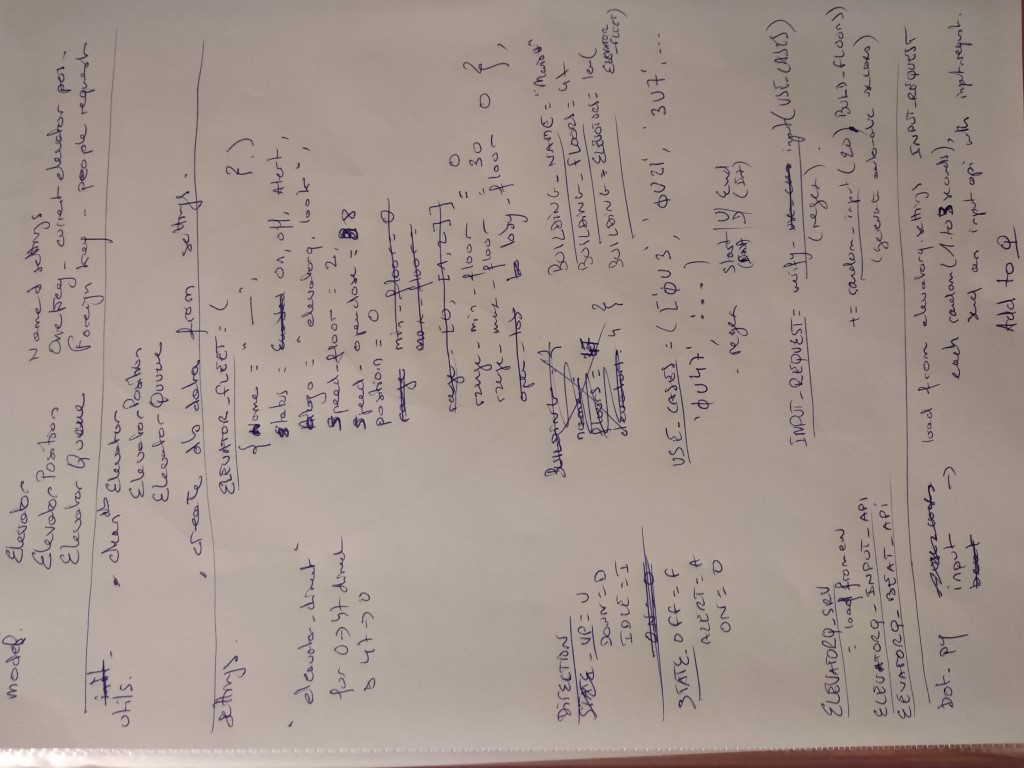 model. Elevator
ElevatorPosition
Elevator Queue
Named settings
OneKey - current elevator pos-
Foreign key - people request
init -
utils.
. clean db Elevator
ElevatorPosition
ElevatorQueue
. create db data from settings.
settings.
ELEVATOR_FLEET = (
{ Name = " — ", }.)
status = Enabled On, off, Alert,
Algo = "elevatorq.look",
speed_floor = 2,
speed_openclose = 8
position = 0
range min_floor = 0
max_floor =
range. [0, [1,2]]
range_min_floor = 0
range_max_floor = 30
open_lob lo loby_floor 0 },
"elevator_direct"
for 0 → 47 direct
47 → 0
DIRECTION
STATE_UP = U
DOWN = D
IDLE = I
ON = O
STATE_OFF = F
ALERT = A
ON = O
BUILDING {
name
floors = 47
elevators 4 }
BUILDING_NAME =
BUILDING_FLOORS = 47
BUILDING_ELEVATORS = len(
ELEVATOR
_FLEET)
USE_CASES = (['0U3', '0U21', '3U7', ...
'0U47', '...)
- regex Start|U| End
(Int) D (Int)
INPUT_REQUEST = verify_ input(USE_CASES)
(regex).
+= random_input(20, BUILD_FLOORS)
(generat automatic
ELEVATORQ_SRV
= load from env
ELEVATORQ_INPUT_API
EEVATORQ_BEAT_API
Dot.py
input →
beat
load from elevatorq.settings INPUT_REQUEST
each random(1.to 3 seconds),
send an input api with input request.
Add to Q